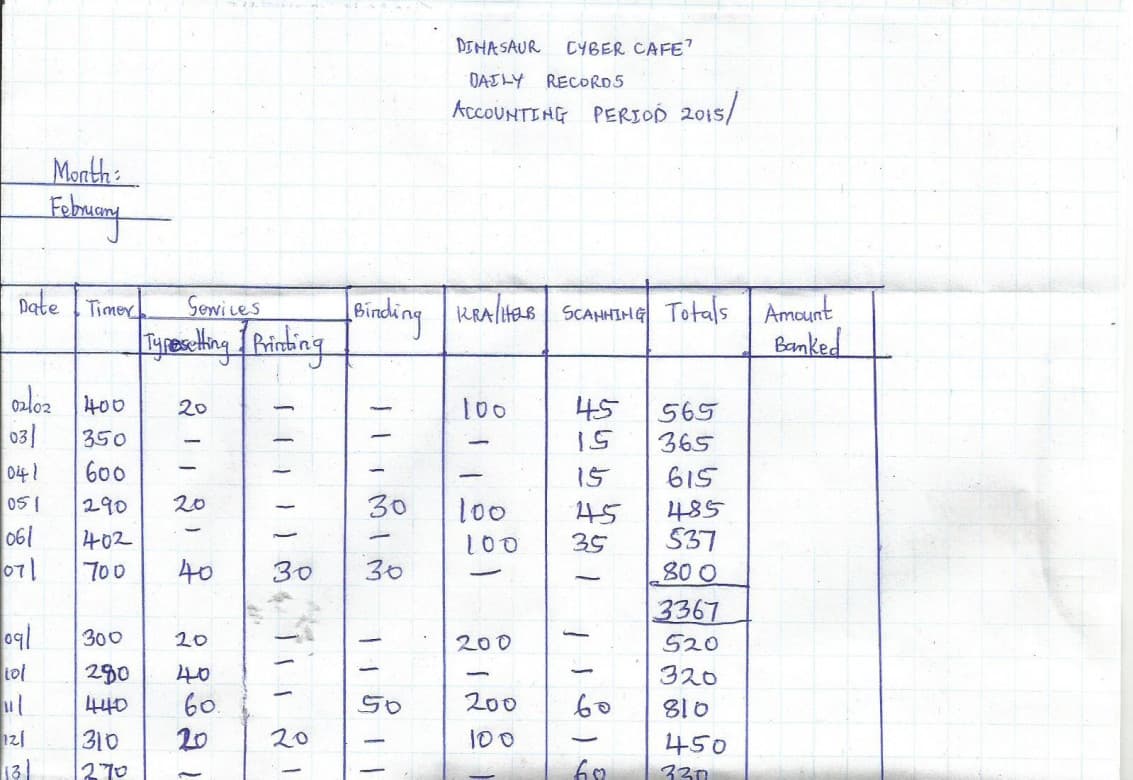 DINASAUR CYBER CAFE'
DAILY RECORDS
ACCOUNTING PERIOD 2015/
Month:
February
Date Timer Services Binding KRA/HELB SCANNING Totals Amount
Typesetting Printing Banked
02/02 400 20 – – 100 45 565
03/ 350 – – – – 15 365
04/ 600 – – – – 15 615
05/ 290 20 – 30 100 45 485
06/ 402 – – – 100 35 537
07/ 700 40 30 30 – – 800
3367
09/ 300 20 – – 200 – 520
10/ 280 40 – – – – 320
11/ 440 60 – 50 200 60 810
12/ 310 20 20 – 100 – 450
13/ 270 – – – – 60 330